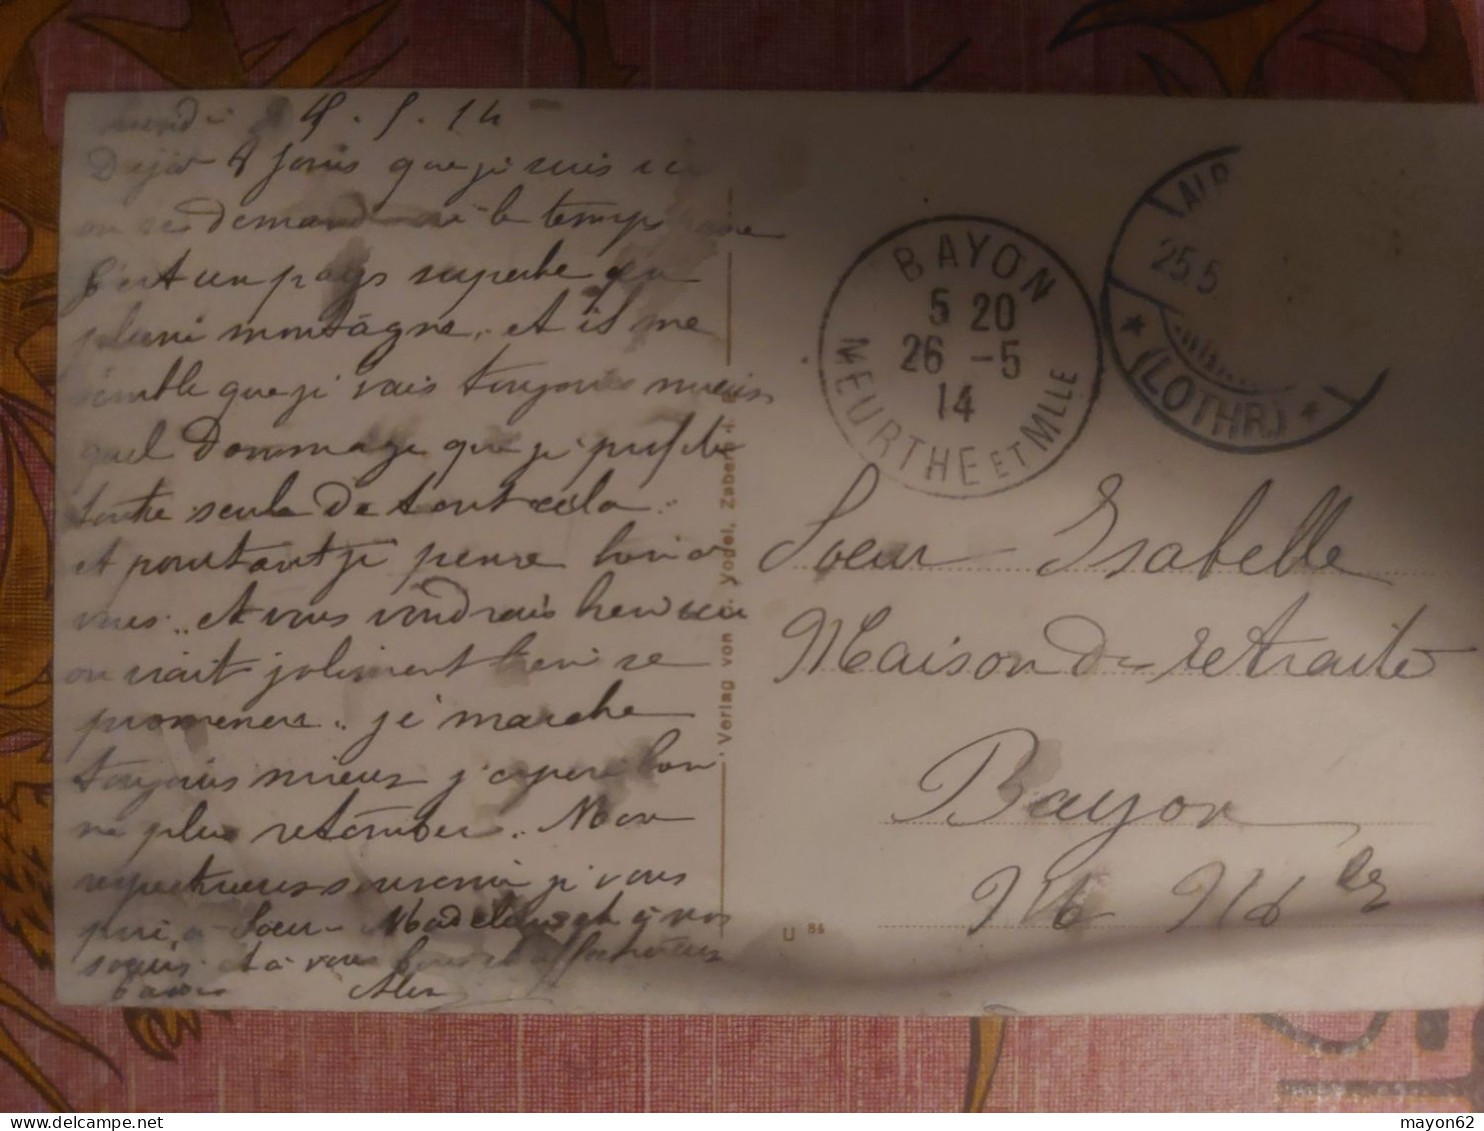 5.14
Dejà 8 jours que je suis ici
on se demande où le temps passe
C'est un pays superbe en
pleine montagne.. et il me
semble que je vais toujours mieux
quel Dommage que je profite
toute seule de tout cela..
et pourtant je pense bien à
vous.. et vous voudrais bien ici
on irait joliment bien se
promener.. je marche
toujours mieux j'espere bien
ne plus retomber.. Mon
respectueux souvenir je vous
prie à Sœur Madeleine et à vos
sœurs et à vous bons et affectueux
baisers Alex
Verlag von Yodel, Zabern i. E.
U 84
BAYON
5 20
26 -5
14
MEURTHE ET MLLE
25.5
(LOTHR.)
Soeur Isabelle
Maison de retraite
Bayon
Mthe Mlle
mayon62